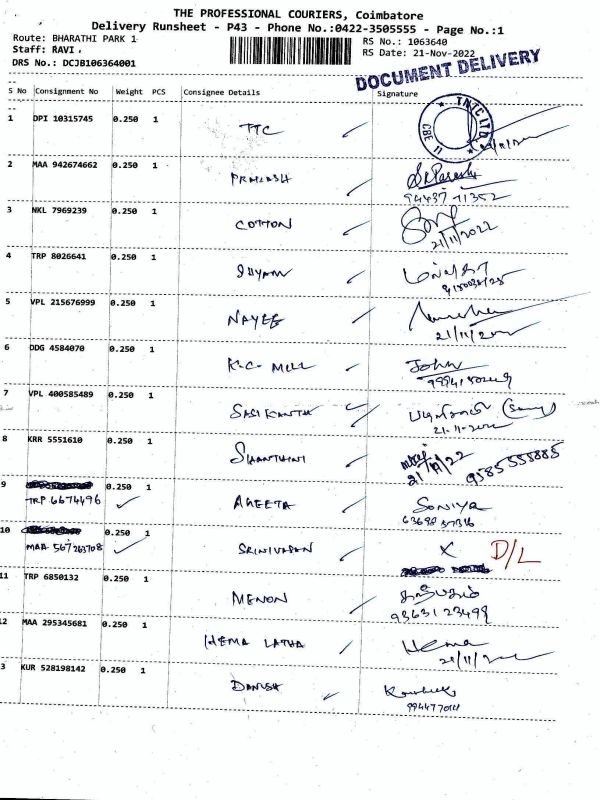 THE PROFESSIONAL COURIERS, Coimbatore
Delivery Runsheet - P43 - Phone No.:0422-3505555 - Page No.:1
Route: BHARATHI PARK 1
RS No.: 1063640
Staff: RAVI .
RS Date: 21-Nov-2022
DRS No.: DCJB106364001
DOCUMENT DELIVERY
S No Consignment No Weight PCS Consignee Details Signature
1 DPI 10315745 0.250 1 TTC
TNTC LTD CBE 11
2 MAA 942674662 0.250 1 PRAKASH
94437 71352
3 NKL 7969239 0.250 1 COTTON
21/11/2022
4 TRP 8026641 0.250 1
5 VPL 215676999 0.250 1 NAYEE
21/11/2022
6 DDG 4584070 0.250 1 K.C. MILL John
7 VPL 400585489 0.250 1 SASIKANTH
21-11-2022
8 KRR 5551610 0.250 1 SHANTHINI
21/11/22 9585 555885
9 0.250 1 AGEETA Soniya
TRP 6674496
10 0.250 1 SRINIVASAN X D/L
MAA 567263708
11 TRP 6850132 0.250 1 MENON
93631 23499
2 MAA 295345681 0.250 1 HEMA LATHA Hema
21/11/2022
3 KUR 528198142 0.250 1 DANISH